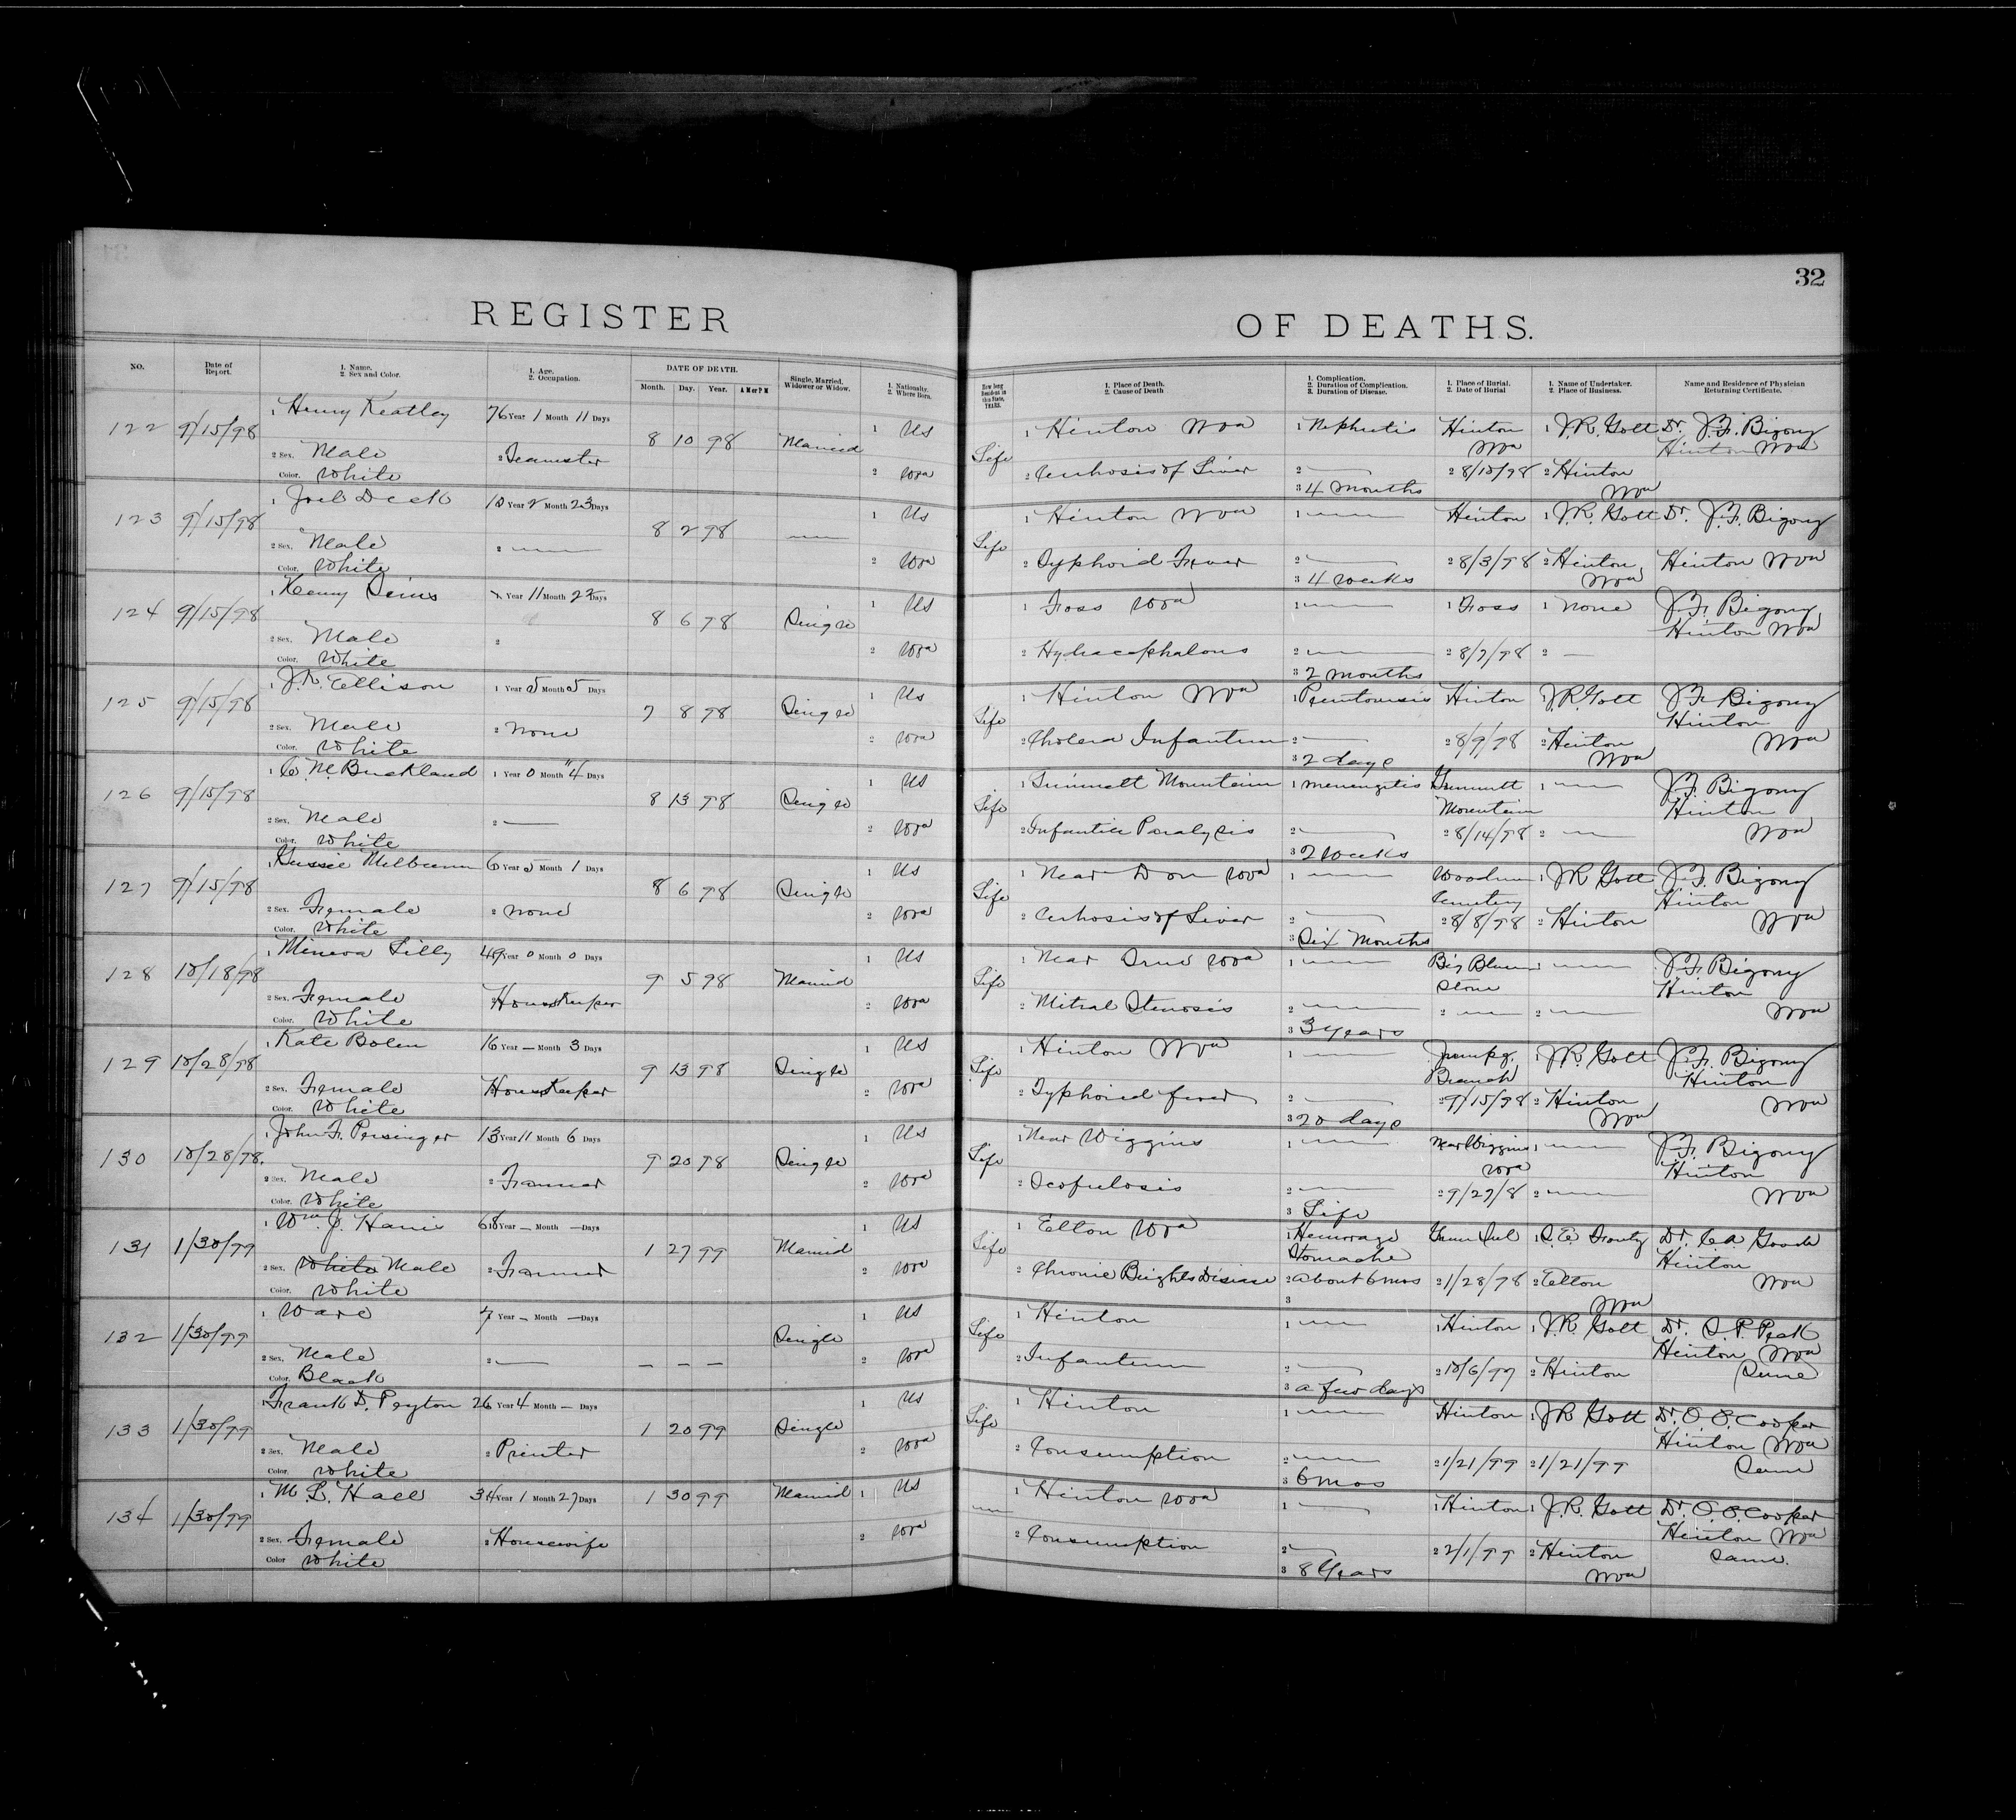 32
REGISTER OF DEATHS.
NO. Date of Report. 1. Name. 2. Sex and Color. 1. Age. 2. Occupation. DATE OF DEATH. Month. Day. Year. A M or P M Single, Married, Widower or Widow. 1. Nationality. 2. Where Born. How long Resident in this State, YEARS. 1. Place of Death. 2. Cause of Death 1. Complication. 2. Duration of Complication. 3. Duration of Disease. 1. Place of Burial. 2. Date of Burial 1. Name of Undertaker. 2. Place of Business. Name and Residence of Physician Returning Certificate.
122 9/15/98 1 Henry Keatley 76 Year 1 Month 11 Days 8 10 98 Married 1 US Life 1 Hinton Wva 1 Nephritis Hinton Wva 1 J.R. Gott Dr. J.F. Bigony Hinton Wva
2 Sex. Male 2 Teamster 2 Wva 2 Cerhosis of Liver 2 — 2 8/10/98 2 Hinton Wva
Color. White 3 4 months
123 9/15/98 1 Joel Deek 10 Year 2 Month 23 Days 8 2 98 — 1 US Life 1 Hinton Wva 1 — Hinton 1 J.R. Gott Dr. J.F. Bigony
2 Sex. Male 2 — 2 Wva 2 Typhoid Fever 2 — 2 8/3/98 2 Hinton Wva Hinton Wva
Color. White 3 4 weeks
124 9/15/98 1 Henry Deins Year 11 Month 22 Days 8 6 98 Single 1 US 1 Foss Wva 1 — 1 Foss 1 None J.F. Bigony Hinton Wva
2 Sex. Male 2 2 Wva 2 Hydracephalous 2 — 2 8/7/98 2 —
Color. White 3 2 months
125 9/15/98 1 J.R. Ellison 1 Year 5 Month 5 Days 7 8 98 Single 1 US Life 1 Hinton Wva 1 Hinton J.R. Gott J.F. Bigony Hinton Wva
2 Sex. Male 2 None 2 Wva 2 Cholera Infantum 2 — 2 8/9/98 2 Hinton Wva
Color. White 3 2 days
126 9/15/98 1 C M Buckland 1 Year 0 Month 4 Days 8 13 98 Single 1 US Life 1 Summett Mountain 1 Menengitis Summitt Mountain 1 — J.F. Bigony Hinton Wva
2 Sex. Male 2 — 2 Wva 2 Infantile Paralysis 2 — 2 8/14/98 2 —
Color. White 3 2 weeks
127 9/15/98 1 Gussie Melburn 6 Year Month 1 Days 8 6 98 Single 1 US Life 1 Near Don Wva 1 — Cemetery 1 J R Gott J.F. Bigony Hinton Wva
2 Sex. Female 2 None 2 Wva 2 Cerhosis of Liver 2 — 2 8/8/98 2 Hinton
Color. White 3 Six Months
128 10/18/98 1 Minerva Lilly 49 Year 0 Month 0 Days 9 5 98 Married 1 US Life 1 Near True Wva 1 — Big Blue Stone 1 — J.F. Bigony Hinton Wva
2 Sex. Female 2 Housekeeper 2 Wva 2 Mitral Stenosis 2 — 2 — 2 —
Color. White 3 3 years
129 10/28/98 1 Kate Bolen 16 Year — Month 3 Days 9 13 98 Single 1 US Life 1 Hinton Wva 1 — Jumpg. Branch 1 J.R. Gott J.F. Bigony Hinton Wva
2 Sex. Female Housekeeper 2 Wva 2 Typhoid fever 2 — 2 9/15/98 2 Hinton Wva
Color. White 3 20 days
130 10/28/98. 1 John F. Persinger 13 Year 11 Month 6 Days 9 20 98 Single 1 US Life 1 Near Wiggins 1 — Near Wiggins Wva 1 — J.F. Bigony Hinton Wva
2 Sex. Male 2 Farmer 2 Wva 2 Scofulosis 2 — 2 9/27/8 2 —
Color. White 3 Life
131 1/30/99 1 Wm. J. Harris 68 Year — Month — Days 1 27 99 Married 1 US Life 1 Elton Wva 1 Hemorrage Stomache 1 Dr. C.A. Goode Hinton Wva
2 Sex. White Male 2 Farmer 2 Wva 2 Chronic Brights Disease 2 about 6 mos 2 1/28/98 2 Elton Wva
Color. White 3
132 1/30/99 1 Ware 7 Year — Month — Days Single 1 US Life 1 Hinton 1 — 1 Hinton 1 J.R. Gott Dr. S.P. Peck Hinton Wva
2 Sex. Male 2 — — — — 2 Wva 2 Infantum 2 — 2 10/6/99 2 Hinton Same
Color. Black 3 a few days
133 1/30/99 1 Frank D. Peyton 26 Year 4 Month — Days 1 20 99 Single 1 US Life 1 Hinton 1 — Hinton 1 J R Gott Dr. O.O. Cooper Hinton Wva
2 Sex. Male 2 Printer 2 Wva 2 Consumption 2 — 2 1/21/99 2 1/21/99 Same
Color. White 3 6 mos
134 1/30/99 1 M L Hall 34 Year 1 Month 27 Days 1 30 99 Married 1 US — 1 Hinton Wva 1 — 1 Hinton 1 J.R. Gott Dr. O.O. Cooper Hinton Wva
2 Sex. Female 2 Housewife 2 Wva 2 Consumption 2 — 2 2/1/99 2 Hinton Wva Same.
Color White 3 8 Years